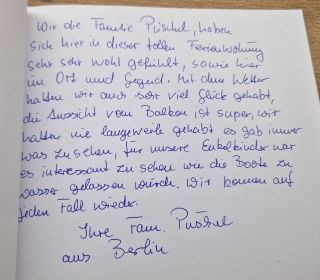 Wir die Familie Püschel, haben
sich hier in dieser tollen Ferienwohnung
sehr sehr wohl gefühlt, sowie hier
im Ort und Gegend. Mit dem Wetter
hatten wir auch sehr viel Glück gehabt,
die Aussicht vom Balkon ist super, wir
hatten nie langeweile gehabt es gab immer
was zu sehen, für unsere Enkelkinder war
es interessant zu sehen wie die Boote zu
wasser gelassen wurde. Wir kommen auf
jeden Fall wieder.
Ihre Fam. Püschel
aus Berlin